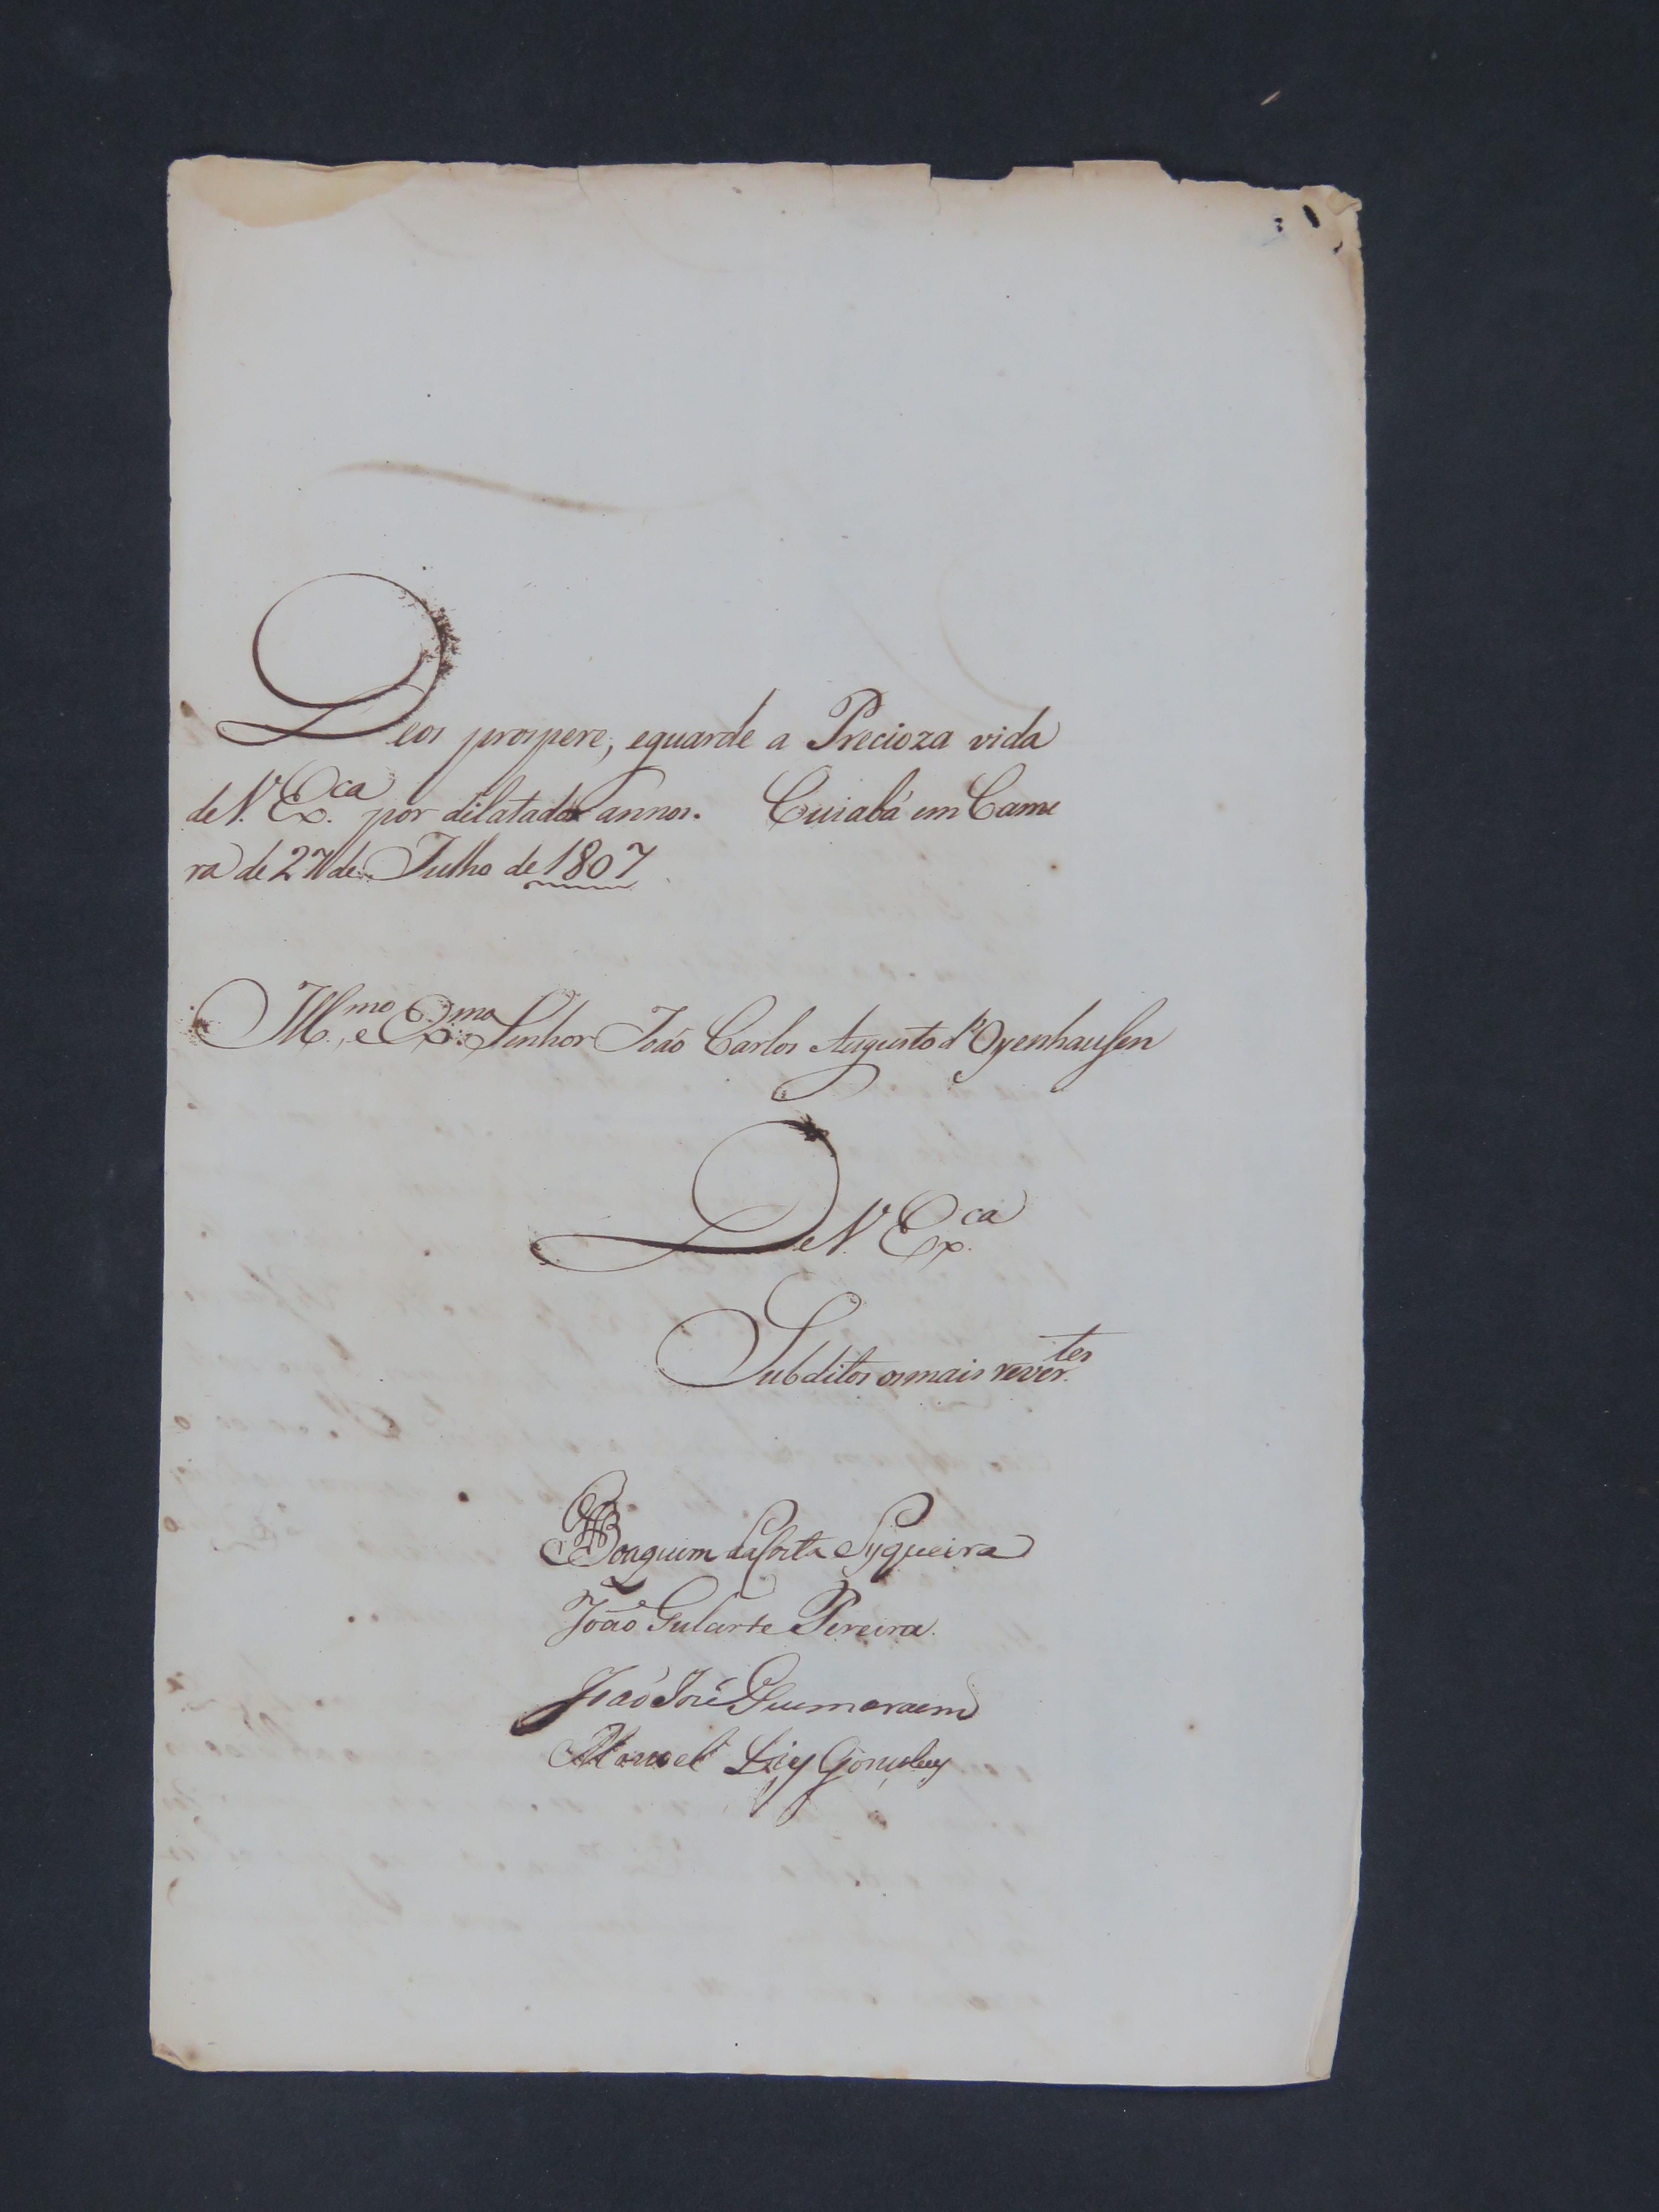 Deos prospere, eguarde a Precioza vida
de V. Ex.ca por dilatados annos. Cuiabá em Came
ra de 27 de Julho de 1807
Ill.mo, e Ex.mo Senhor João Carlos Augusto d'Oyenhausen
De V. Ex.ca
Subditos os mais rever.tes
Joaquim da Costa Syqueira
João Gularte Pereira.
João José Guimaraens
Manoel Luiz Gonçalves